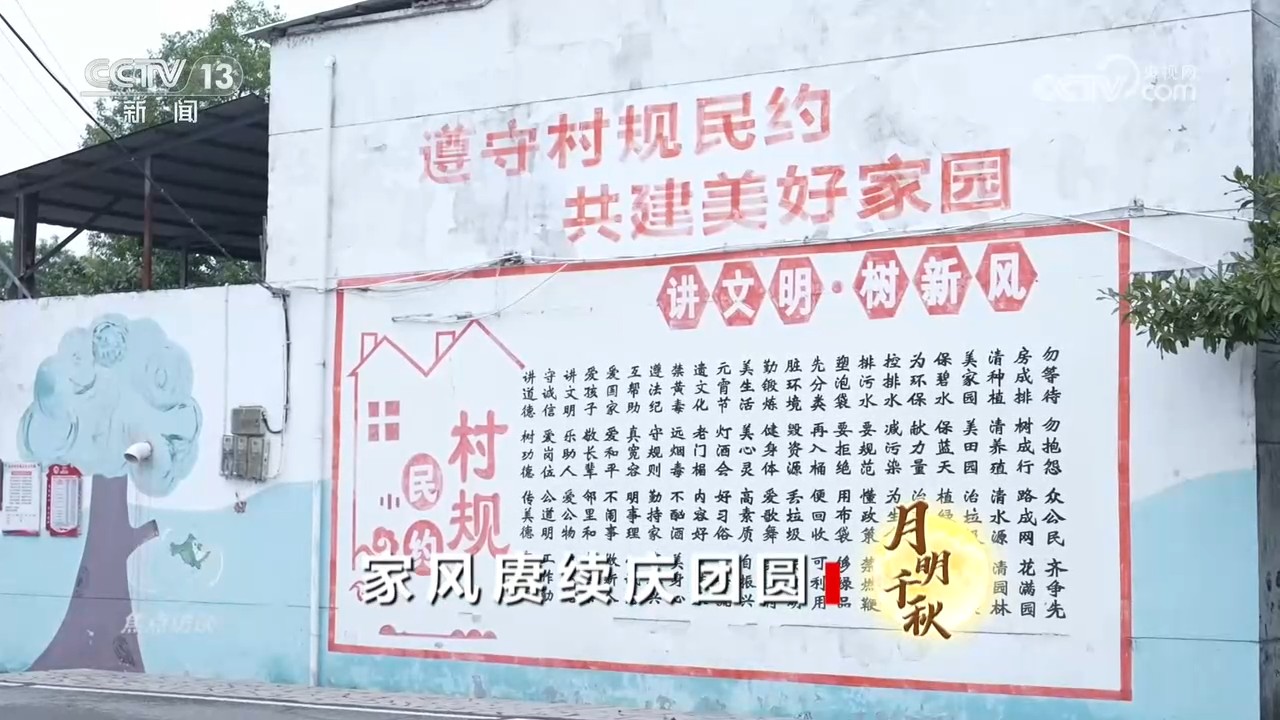 CCTV 13
新闻
央视网
CCTV.com
遵守村规民约
共建美好家园
讲文明·树新风
村规
民约
小
讲道德 树功德 传美德
守诚信 爱岗位 公道明
讲文明 乐助人 爱公物
爱孩子 敬长辈 邻里和
爱国家 爱和平 不闹事
互帮助 真宽容 明事理
遵法纪 守规则 勤持家
禁黄毒 远烟毒 不酗酒
遗文化 老门楣 内容好
元宵节 灯酒会 好习俗
美生活 美心灵 高素质
勤锻炼 健身体 爱歌舞
脏环境 毁资源 丢垃圾
先分类 再入桶 便回收 可利用
塑泡袋 要拒绝 用布袋
排污水 要规范 懂政策 禁燃鞭
控排水 减污染 为生
为环保 献力量
保碧水 保蓝天 植绿
美家园 美田园 治垃
清种植 清养殖 清水源 清园林
房成排 树成行 路成网 花满园
勿等待 勿抱怨 众公民 齐争先
家风赓续庆团圆
月明千秋
焦点访谈